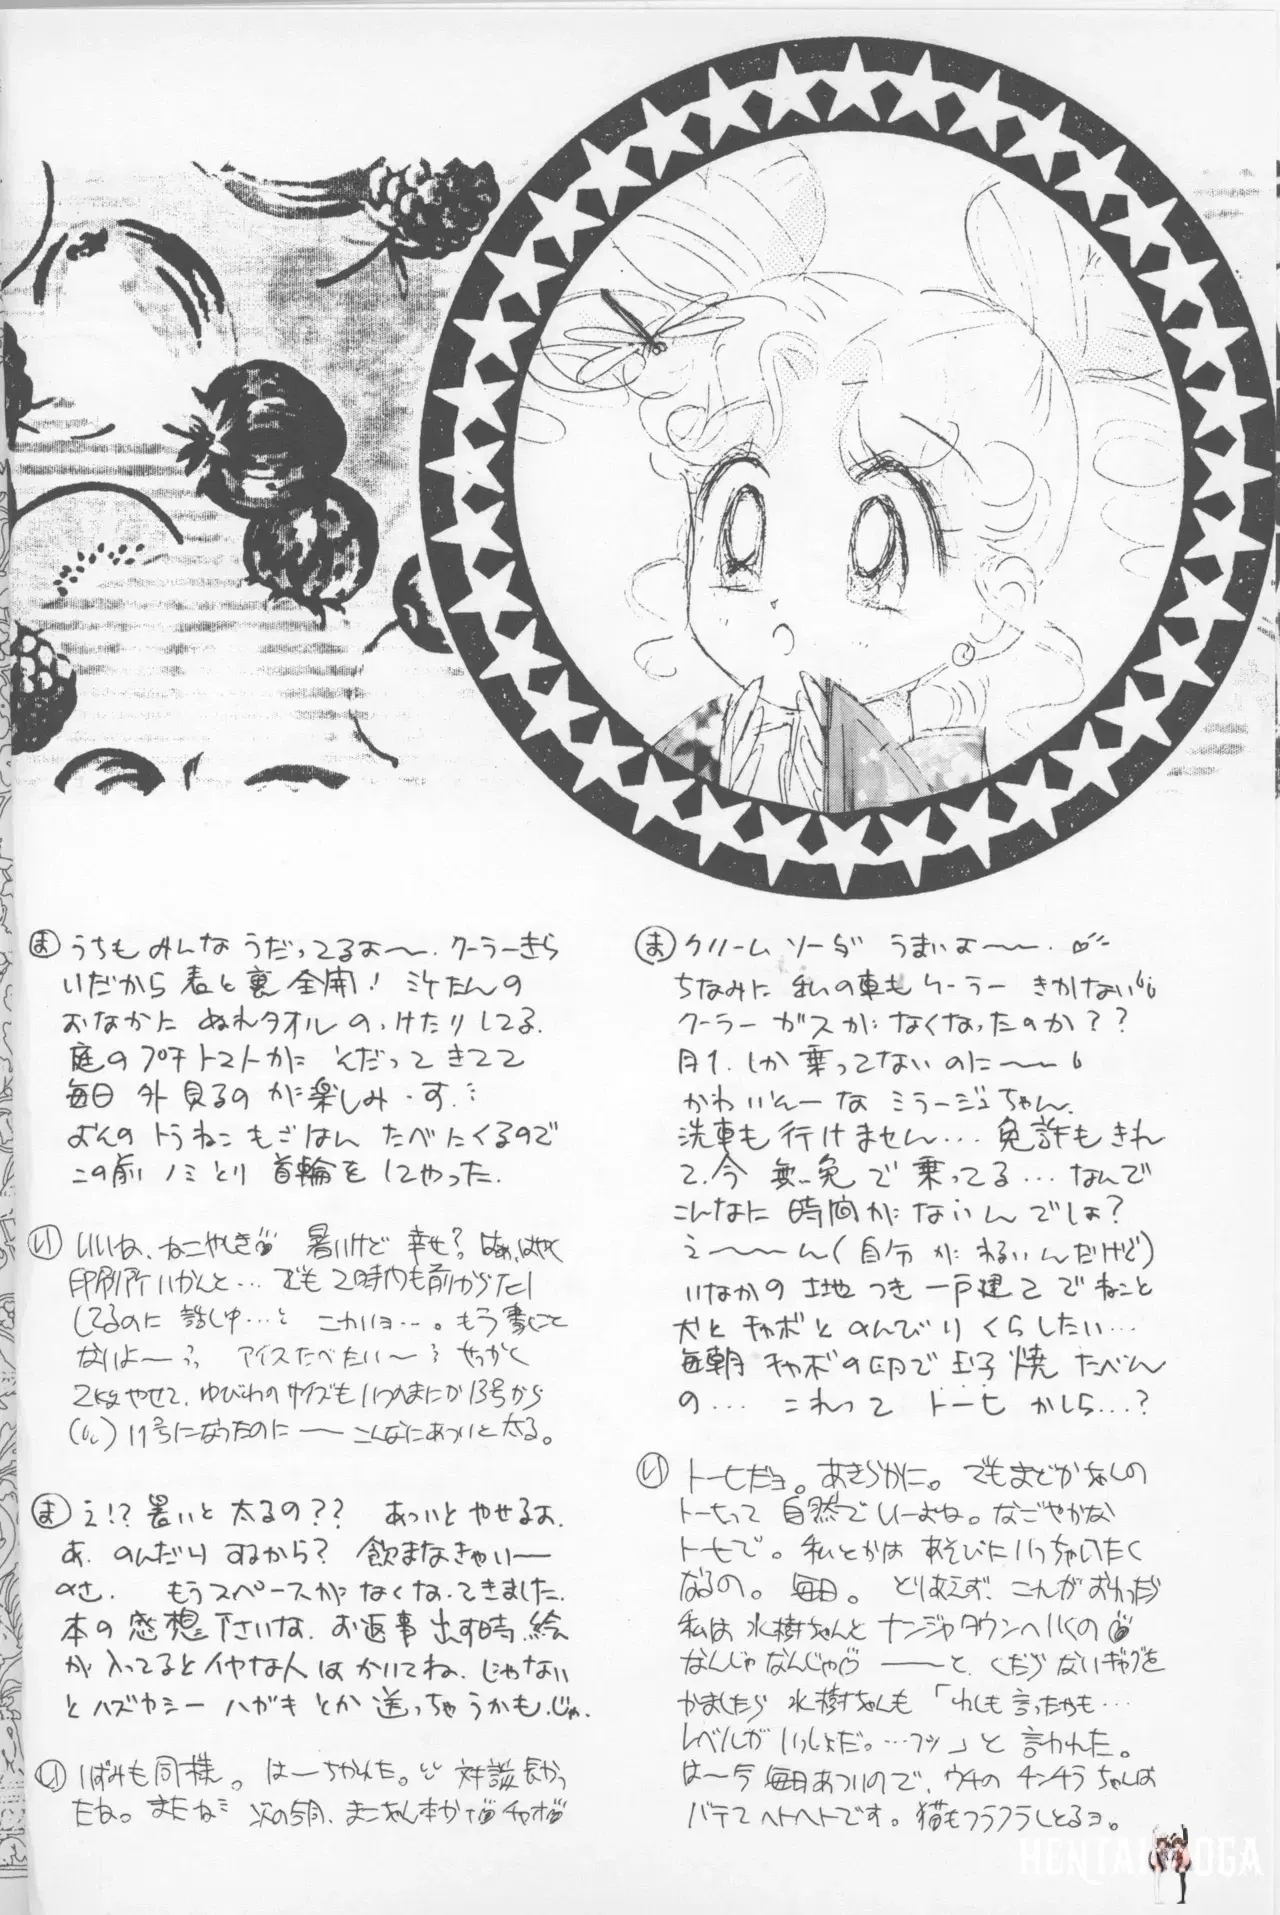 ま クリームソーダ うまいよ〜〜.
ちなみに 私の車もクーラー きかない
クーラー ガスが なくなったのか??
月1.しか乗ってないのに〜〜
かわいんーな ミラージュちゃん.
洗車も行けません... 免許もきれ
て.今 無免で乗ってる...なんで
こんなに 時間がないんでしょ?
え〜〜〜ん(自分がわるいんだけど)
いなかの 土地つき一戸建てでねこと
犬と チャボと のんびり くらしたい...
毎朝 チャボの卵で玉子焼 たべんの
の... これって トーヒ かしら...?
い トーヒだョ。あきらかに。でもまどかちゃんの
トーヒって 自然でいーよね。なごやかな
トーヒで。私とかは あそびにいっちゃいたく
なるの。毎日。とりあえず、これがおわったら
私は 水樹ちゃんと ナンジャタウンへいくの
なんじゃなんじゃ〜〜〜と、くだらないギャグを
かましたら 水樹ちゃんも「わしも言ったかも...
レベルが いっしょだ。...フッ」と 言われた。
は〜今 毎日あついので、ウチの チンチラちゃんは
バテてヘトヘトです。猫もフラフラしとるョ。
ま うちもみんなうだってるよ〜〜.クーラーきら
いだから 表と裏 全開! ミケたんの
おなかに ぬれタオルのっけたりしてる.
庭の プチトマトが そだってきてて
毎日 外見るのが楽しみ.す.
よその トラねこもごはん たべにくるので
この前 ノミとり 首輪を してやった.
い いいね、ねこやしき 暑いけど 幸せ? はぁ、はやく
印刷所いかんと... でも 2時間も前からだし
してるのに 話し中... こわいョ...。もう書くこと
ないよ〜 アイスたべたい〜 せっかく
2kgやせて、ゆびわのサイズもいつのまにか13号から
11号になったのに〜こんなにあついと太る。
ま え!?暑いと 太るの?? あっいと やせるよ.
あ. のんだりするから? 飲まなきゃいー
のさ. もうスペースがなくなってきました.
本の 感想 下さいな. お返事 出す時、絵
が入ってるとイヤな人は かいてね. じゃない
と ハズカシー ハガキ とか 送っちゃうかも.じゃ.
い いばみも同様。は〜ちかれた。対談長かっ
たね。またね